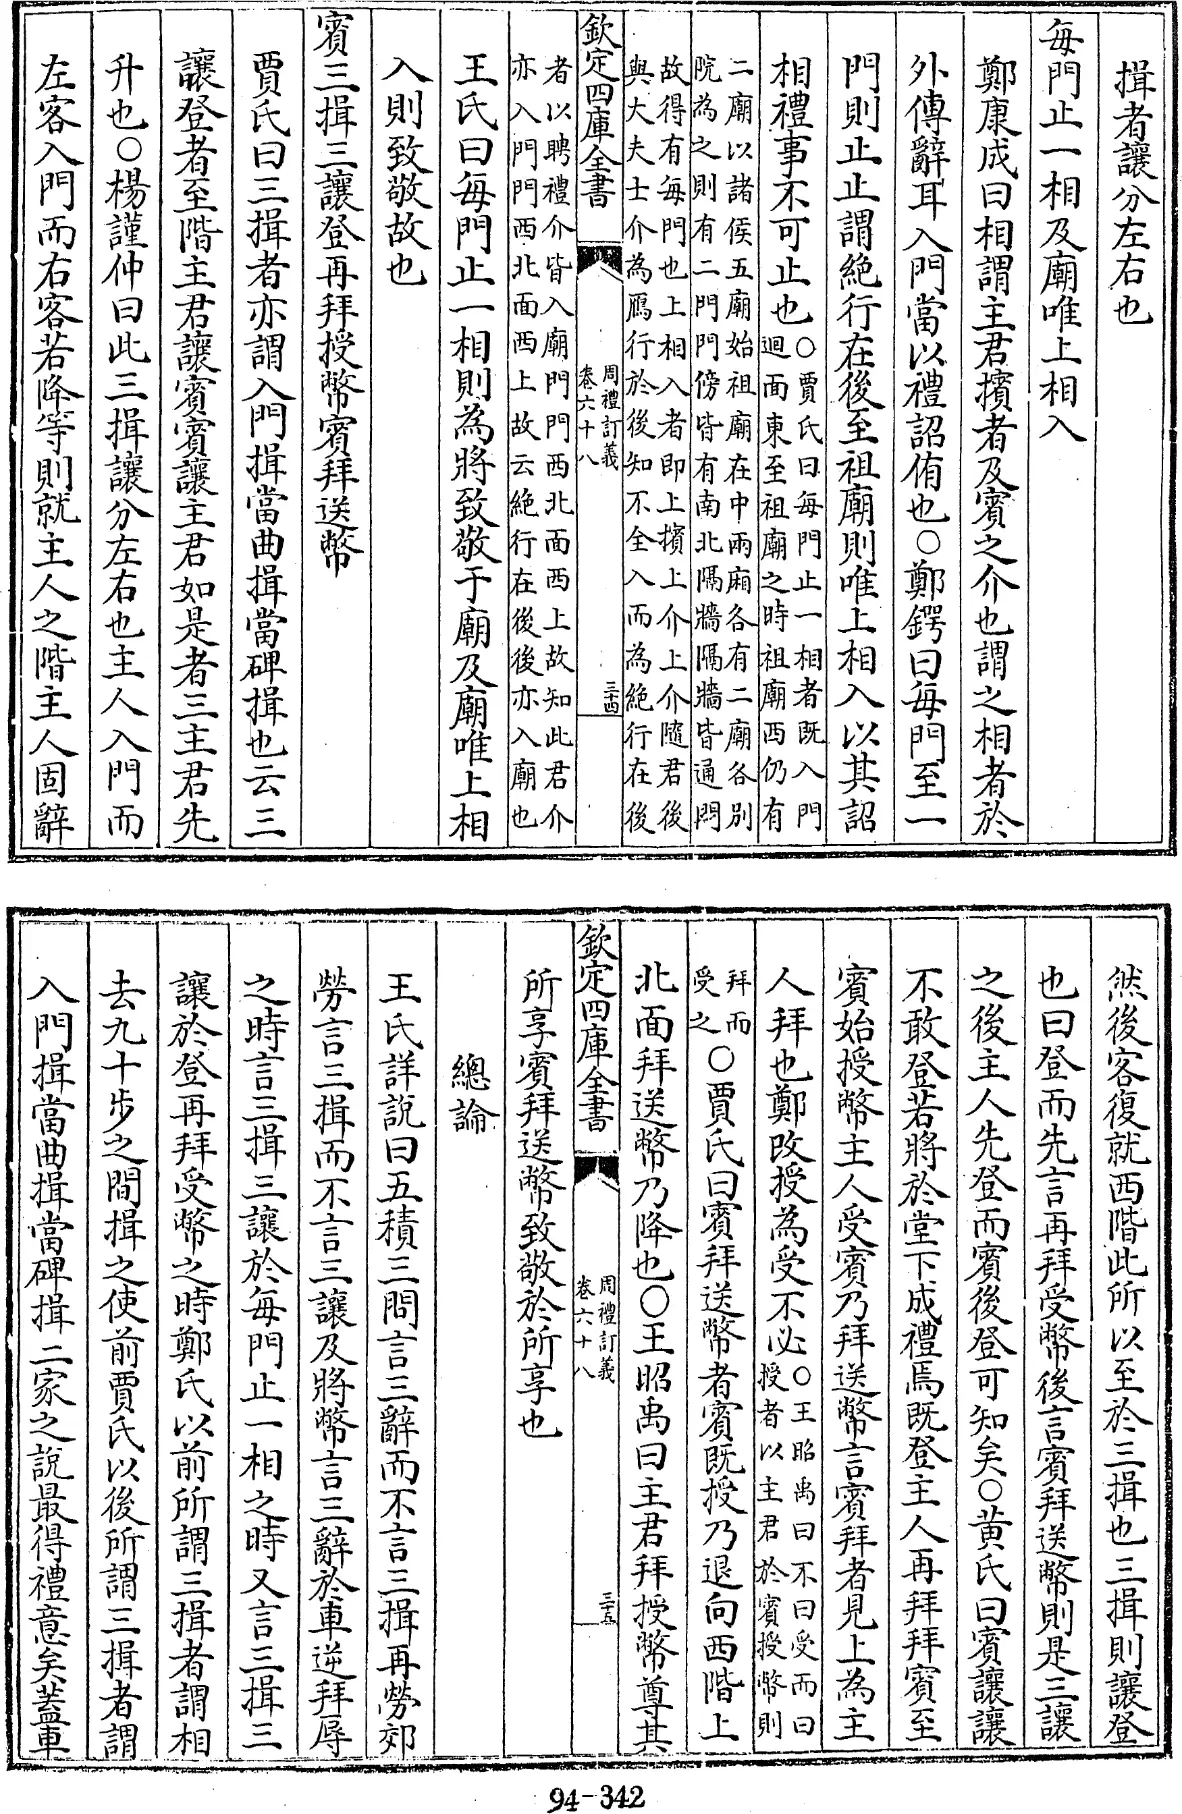 揖者讓分左右也
每門止一相及廟唯上相入
鄭康成曰相謂主君擯者及賓之介也謂之相者於
外傳辭耳入門當以禮詔侑也○鄭鍔曰每門至一
門則止止謂絶行在後至祖廟則唯上相入以其詔
相禮事不可止也○賈氏曰每門止一相者既入門
迴面東至祖廟之時祖廟西仍有
二廟以諸侯五廟始祖廟在中兩廂各有二廟各別
院為之則有二門門傍皆有南北隔牆隔牆皆通閟
故得有每門也上相入者即上擯上介上介隨君後
與大夫士介為鴈行於後知不全入而為絶行在後
欽定四庫全書
周禮訂義
卷六十八
三十四
者以聘禮介皆入廟門門西北面西上故知此君介
亦入門門西北面西上故云絶行在後後亦入廟也
王氏曰每門止一相則為將致敬于廟及廟唯上相
入則致敬故也
賓三揖三讓登再拜授幣賓拜送幣
賈氏曰三揖者亦謂入門揖當曲揖當碑揖也云三
讓登者至階主君讓賓賓讓主君如是者三主君先
升也○楊謹仲曰此三揖讓分左右也主人入門而
左客入門而右客若降等則就主人之階主人固辭
然後客復就西階此所以至於三揖也三揖則讓登
也曰登而先言再拜受幣後言賓拜送幣則是三讓
之後主人先登而賓後登可知矣○黃氏曰賓讓讓
不敢登若將於堂下成禮焉既登主人再拜拜賓至
賓始授幣主人受賓乃拜送幣言賓拜者見上為主
人拜也鄭改授為受不必○王昭禹曰不曰受而曰
授者以主君於賓授幣則
拜而
受之○賈氏曰賓拜送幣者賓既授乃退向西階上
北面拜送幣乃降也○王昭禹曰主君拜授幣尊其
欽定四庫全書
周禮訂義
卷六十八
三十五
所享賓拜送幣致敬於所享也
總論
王氏詳說曰五積三問言三辭而不言三揖再勞郊
勞言三揖而不言三讓及將幣言三辭於車逆拜辱
之時言三揖三讓於每門止一相之時又言三揖三
讓於登再拜受幣之時鄭氏以前所謂三揖者謂相
去九十步之間揖之使前賈氏以後所謂三揖者謂
入門揖當曲揖當碑揖二家之說最得禮意矣蓋車
94-342